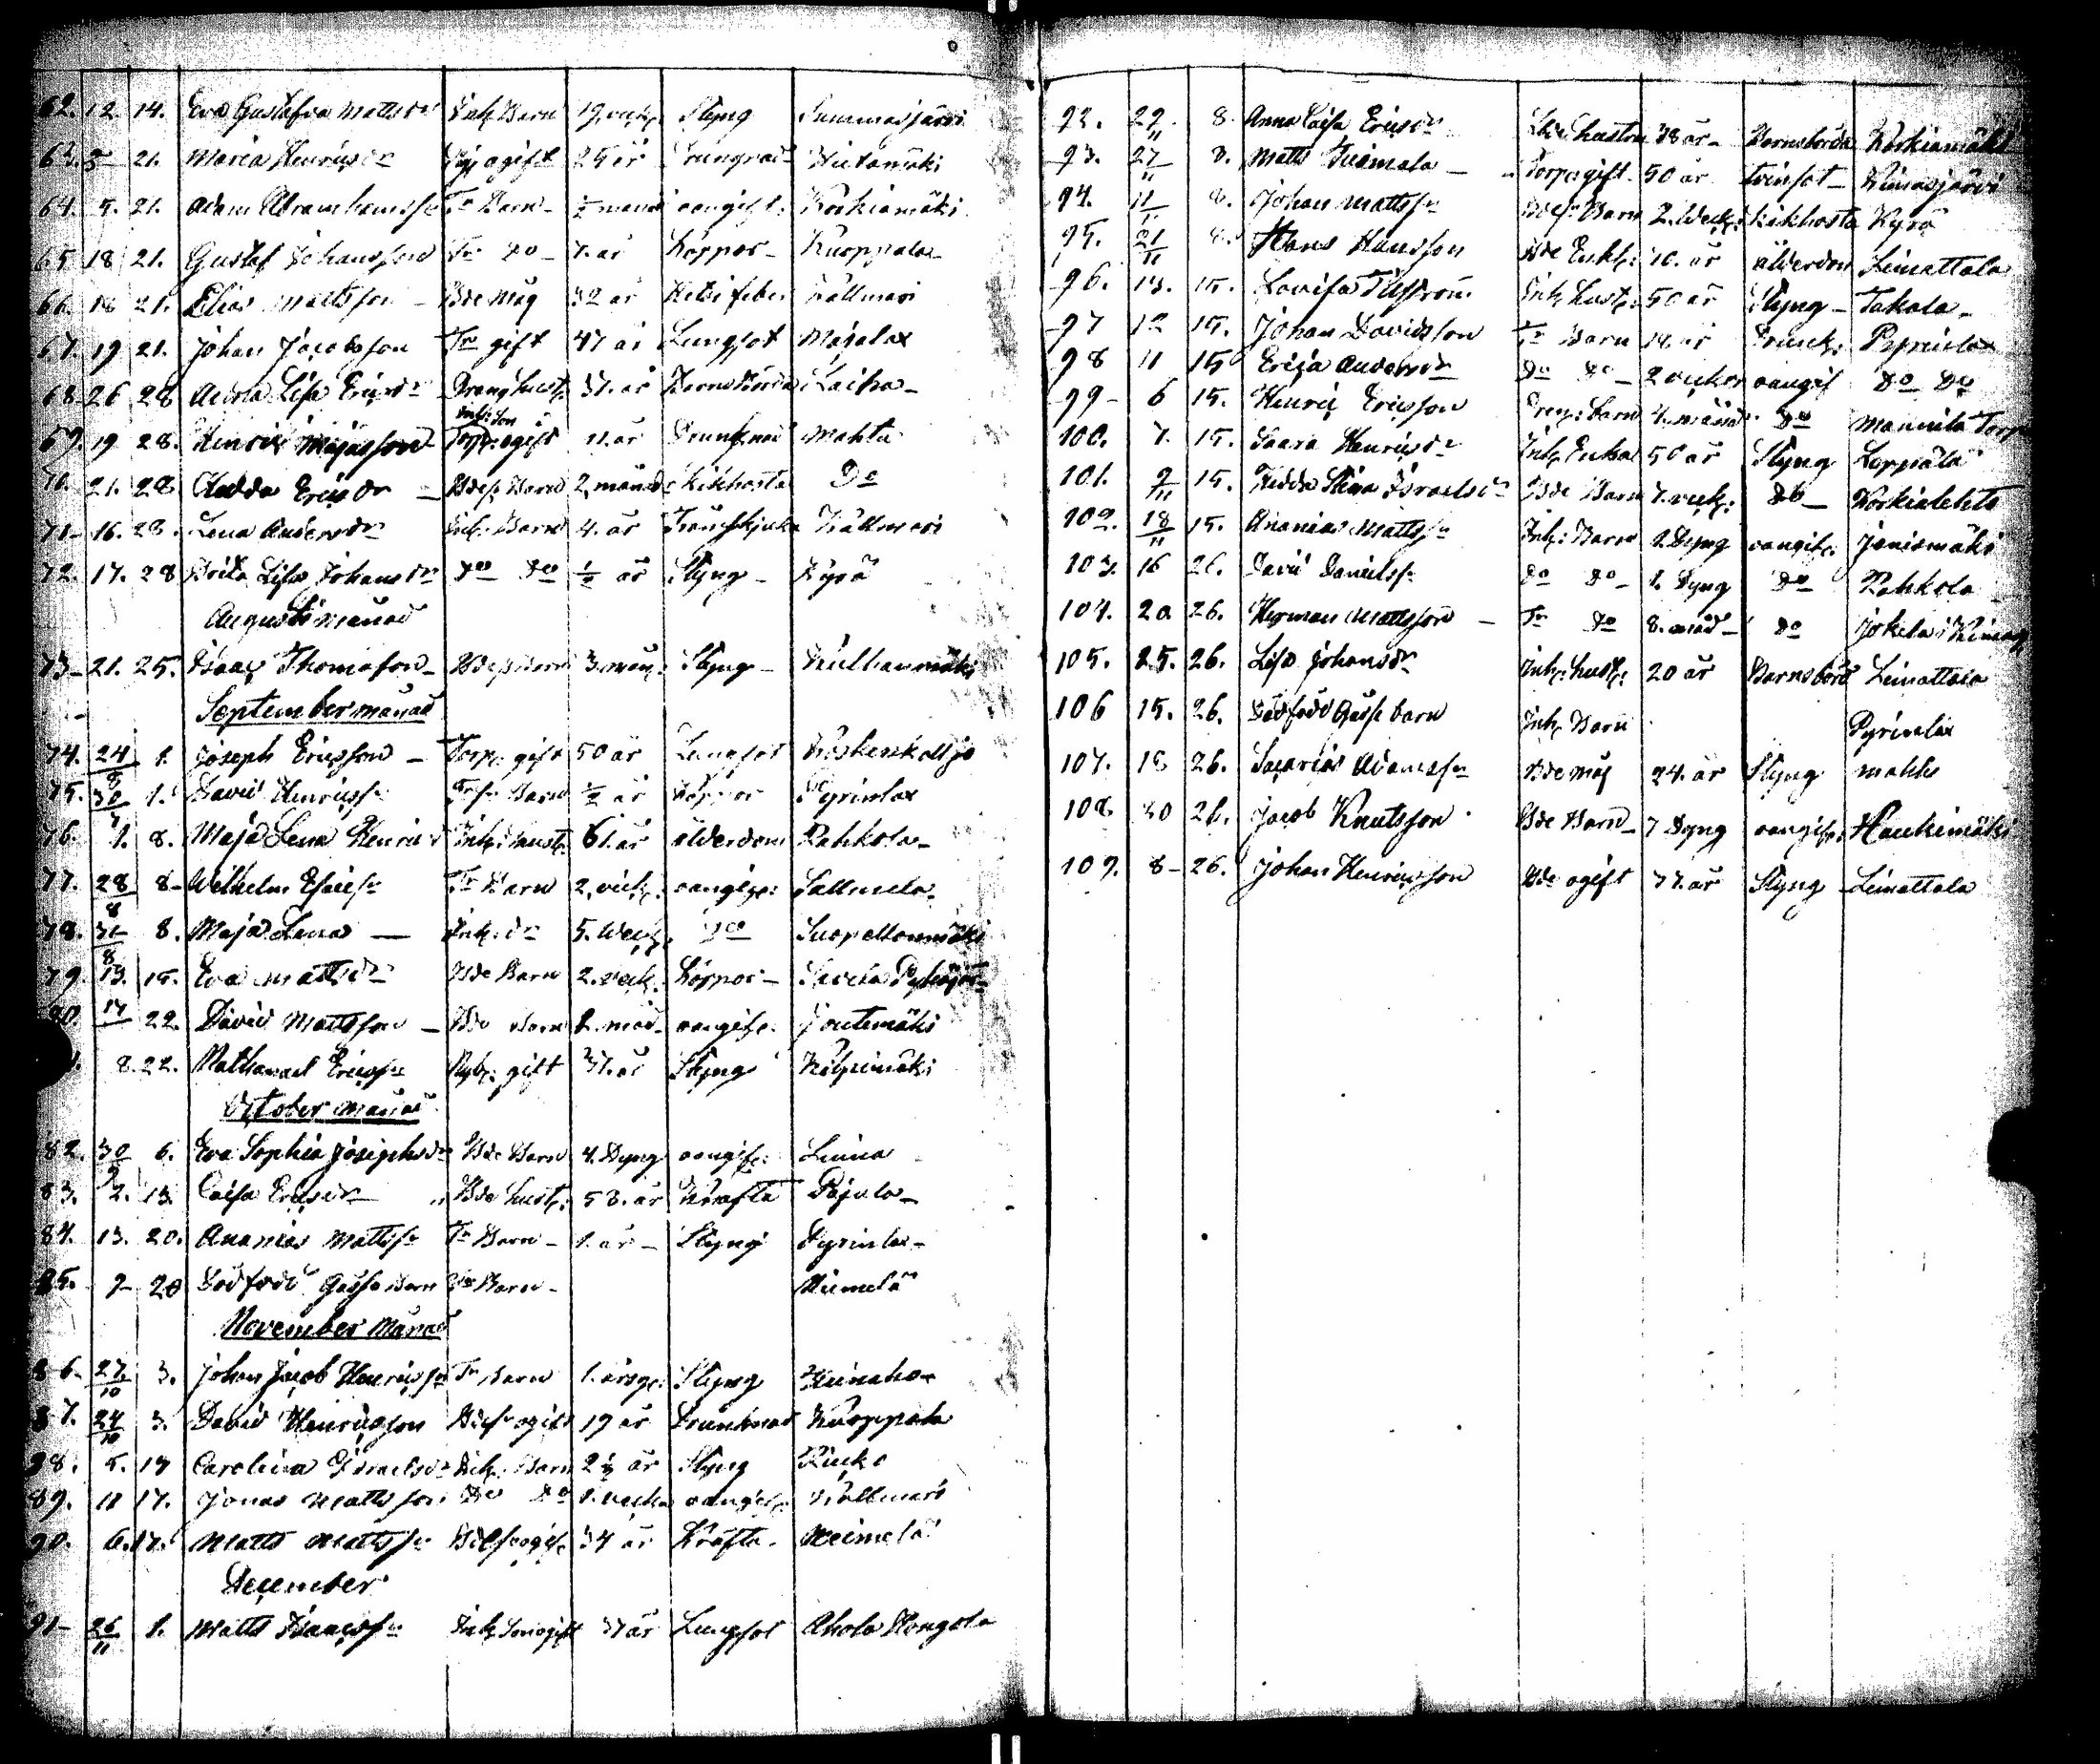 62. 12. 14. Eva Gustafva Mattsdr Inh: Barn 19. veck: Styng Summasjärvi
63. 21. Maria Henricsdr ogift 25 år Hietamäki
64. 9. 21. Adam Abramhamss: Tr Barn - ½ månd oangift: Korkiamäki
65 18 21. Gustaf Johansson Tr Do - 7. år Koppor - Kuoppala -
66. 18 21. Elias Mattsson - Bde Måg 32 år Heta feber Kallmari
67. 19 21. Johan Jacobsson Tr gift 47 år Lungsot
68. 26 28 Lisa Ericsdr Dräng hust: 37. år Barnsbörda Laiha -
69. 19 28. Henric Majasson Inh: Son ogift 11. år Drunknad Mahta
70. 21. 28 Hedda Ericsdr - Bdes Barn 2. månd: Kikhosta Do
71 - 16. 28. Lena Andersdr Inh: Barn 4. år Kallmari
72. 17. 28 Brita Lisa Johansdr Do Do ½ år Styng - Kyrö
Augusti månad
73 - 21. 25. Isaac Thomasson - Bdes Barn 3. mån: Styng -
September månad
74. 24/8 1. Joseph Ericsson - Torp: gift 50 år Lungsot Koskenkolljo
75. 30/8 1. David Henricss: Barn ½ år Koppor Pyrinlax
76. 1. 8. Maja Lena Inh: hust: 61. år ålderdom Rahkola -
77. 28/8 8 - Wilhelm Tr Barn 2. veck: oangif: Sallmela -
78. 31/8 8. Maja Lena - Inh: dr 5. Veck: Do
79. 13. 15. Eva Mattsdr Bde Barn 2. veck: Koppor -
80. 14 22. David Mattsson - Bde Barn 2. mån - oangif: Joutemäki
8. 22. Nathanael Ericss: Nyb: gift 37. år Styng Kilpimäki
October månad
82. 30/9 6. Eva Sophia Josephsdr Bde Barn 4. Dygn oangif: Linna
83. 2. 13. Caisa Ericsdr Bde hust: 58. år Kräfta Pajula -
84. 13. 20. Ananias Mattss: Tr Barn - 1. år - Styng Pyrinlax -
85. 9 - 20 Dödfödd Gosse Barn Barn - Niemelä
November månad
86. 27/10 3. Johan Jacob Henricss: Tr Barn 1. årsg: Styng
87. 24/10 3. David Henricsson Bdes ogift 19 år Drunknad Kuoppala
88. 5. 17 Carolina Israelsdr Inh: Barn 2½ år Styng
89. 11 17. Jonas Mattsson Do Do 1. vecka oangif: Kallmari
90. 6. 17. Matts Mattss: 34 år Kräfta - Niemelä
December
91 - 26/11 1. Matts Isacss: Inh: Son ogift 37 år Lungsot Ahola Kongola
92. 29/11 8. Anna Caisa Ericsdr Bde hustru 38 år - Barnsbörda Korkiamäki
93. 27/11 8. Matts Tuomala - Torp: gift - 50 år tvinsot - Kinasjärvi
94. 11/11 8. Johan Mattss: Bdes Barn 2. Veck: Kikhosta Kyrö
95. 21/11 8. Hans Hansson Bde Enkl: 70. år ålderdom Leimattala
96. 13. 15. Lovisa Inh: hust: 50 år Styng - Takala -
97 12 15. Johan Davidsson Tr Barn 14. år Drunk: Pyrinlax
98 11 15 Erica Andersdr Do Do - 2 veckor oangif Do Do
99 - 6 15. Henric Ericsson Dreng: barn 4. månad Do Mannila Torp
100. 7. 15. Saara Henricsdr Inh: Enka 50 år Styng Leppälä
101. 9/11 15. Hedda Stina Israelsdr Bde Barn 7. veck: Do - Korkialehto
102. 18/11 15. Ananias Mattss: Inh: Barn 2 Dygn oangif: Jänismäki
103. 16 26. David Danielss: Do Do - 1. Dygn Do Rahkola
104. 20 26. Herman Mattsson - Tr Do 8. mån - Do Jokela
105. 25. 26. Lisa Johansdr Inh: hust: 20 år Barnsbörd Leimattala
106 15. 26. Dödfödd Gosse barn Inh: Barn Pyrinlax
107. 18 26. Zacarias Adamss: Bde Måg 24. år Styng Mahta
108 20 26. Jacob Knutsson Bde Barn - 7 Dygn oangif: Haukimäki
109. 8 - 26. Johan Henricsson Bde ogift 77. år Styng Leimattala